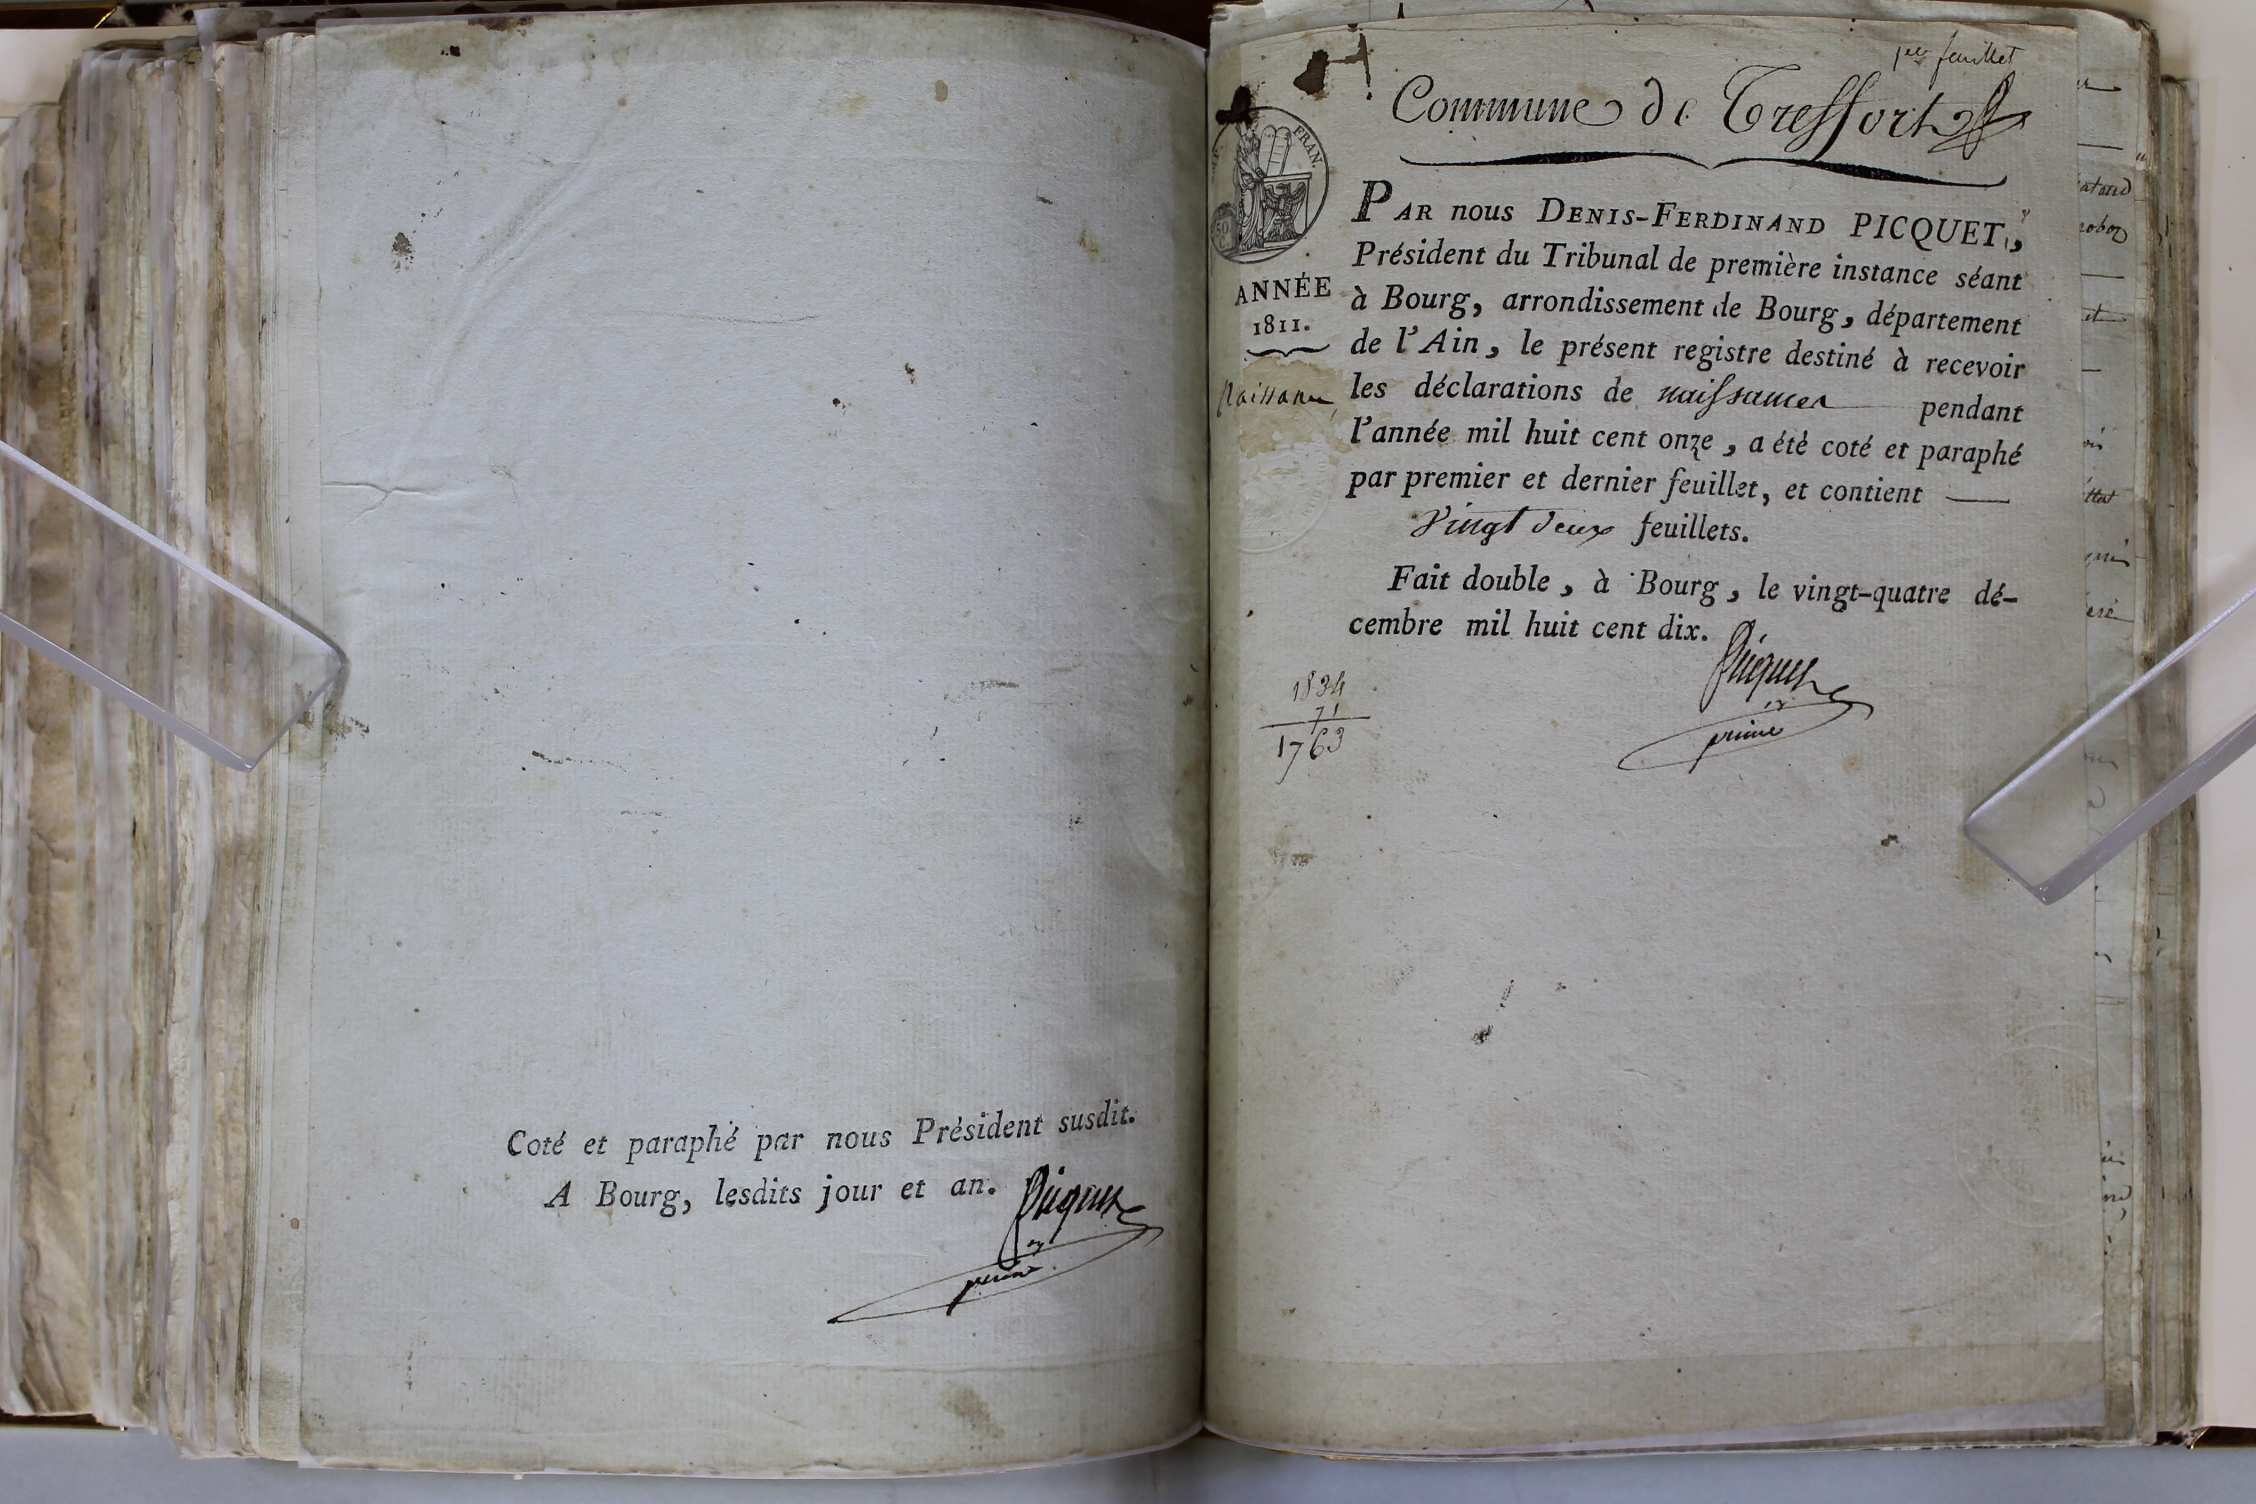 Coté et paraphé par nous Président susdit.
A Bourg, lesdits jour et an.
Picquet
1er feuillet
Commune de Treffort
FRAN.
50
ANNÉE
1811.
Naissance
PAR nous DENIS-FERDINAND PICQUET,
Président du Tribunal de première instance séant
à Bourg, arrondissement de Bourg, département
de l'Ain, le présent registre destiné à recevoir
les déclarations de naissances pendant
l'année mil huit cent onze, a été coté et paraphé
par premier et dernier feuillet, et contient —
Vingt deux feuillets.
Fait double, à Bourg, le vingt-quatre dé-
cembre mil huit cent dix.
Picquet
1834
71
1763